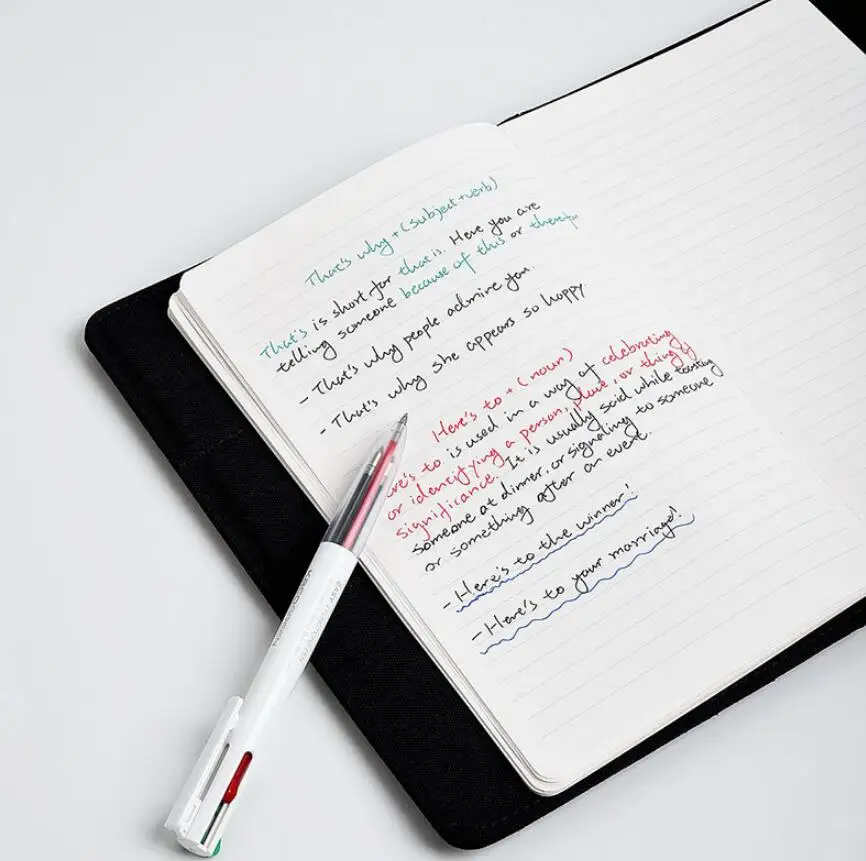 That's why + (subject + verb)
That's is short for that is. Here you are
telling someone because of this or
- That's why people admire you.
- That's why she appears so happy
Here's to + (noun)
to is used in a way of celebrating
or identifying a person, place, or thing's
significance. It is usually said while toasting
someone at dinner, or signaling to someone
or something after an event.
- Here's to the winner!
- Here's to your marriage!